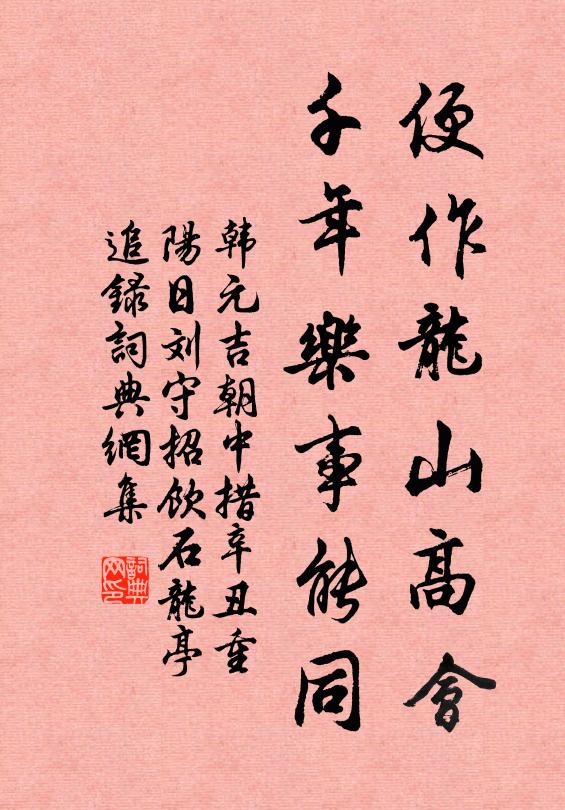 便作龍山高會
千年樂事能同
韩元吉朝中措辛丑重
陽日刘守招飲石龍亭
追錄詞典網集
詞典
网印